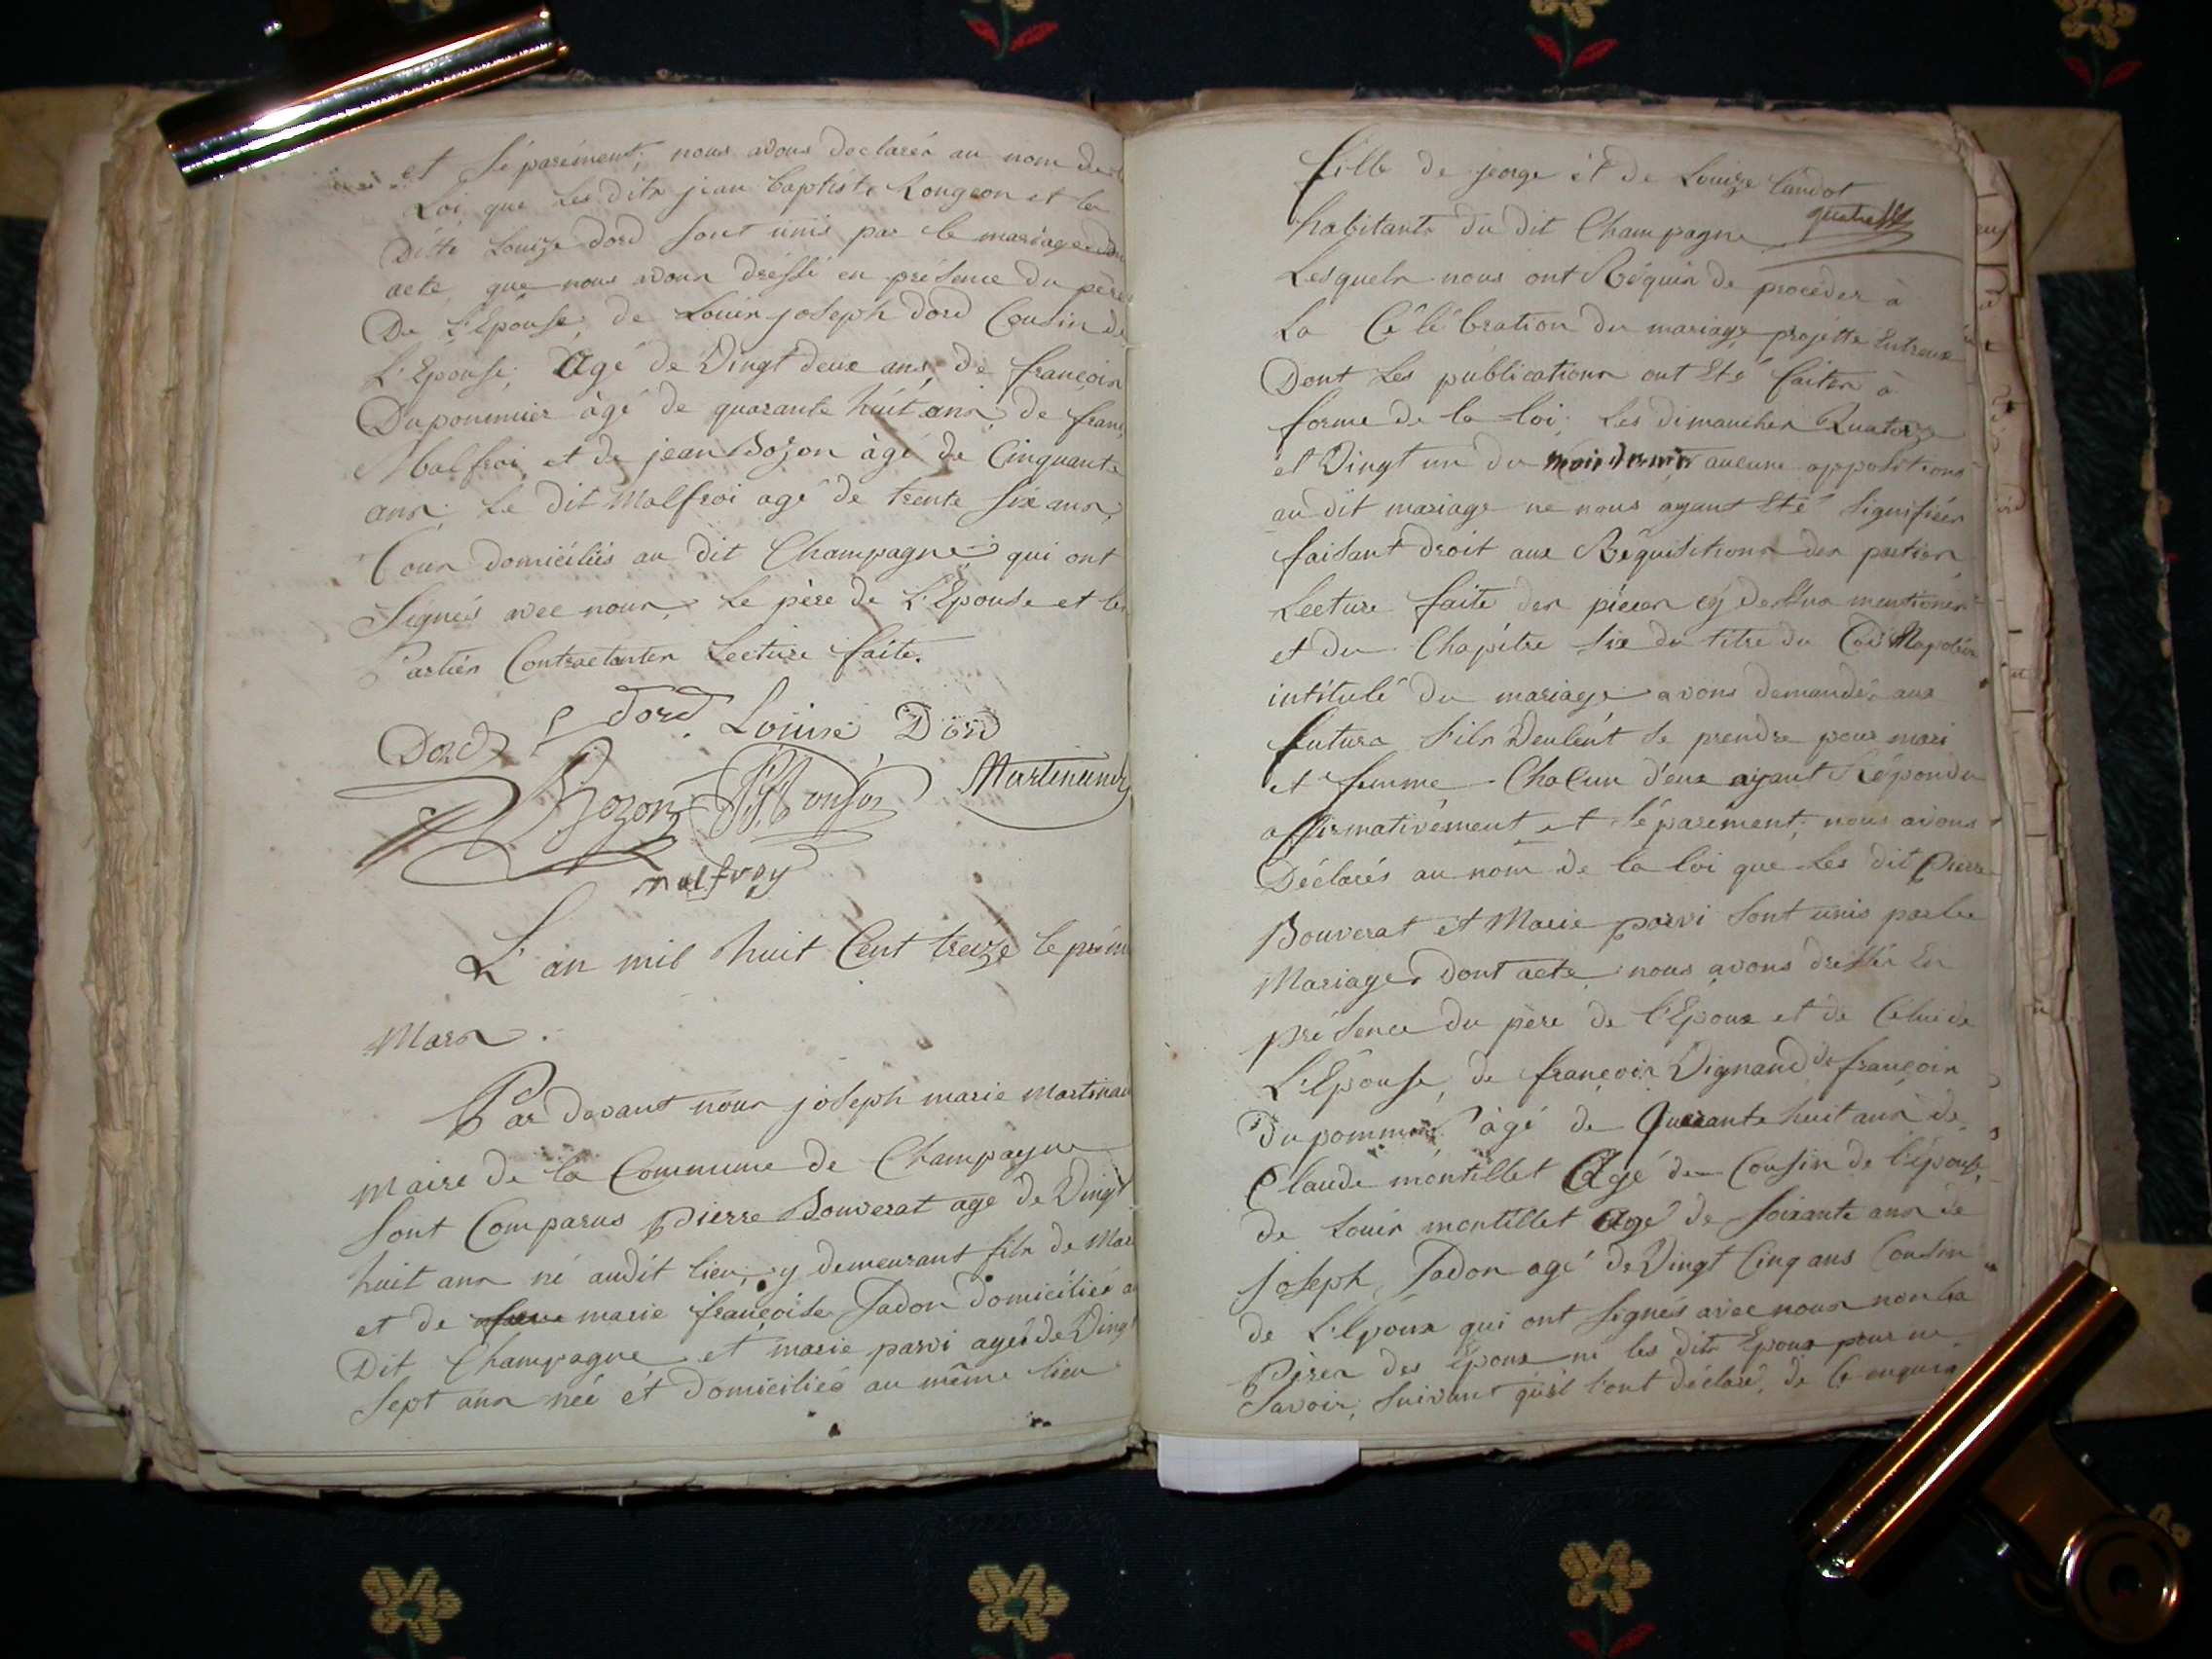 et séparément, nous avons declarés au nom de la
Loi que les dits jean baptiste Rongeon et la
ditte Louize dord sont unis par le mariage dont
acte que nous avons dréssé en présence du père
De L'Epouse, de Louis joseph dord Cousin de
L'Epouse, Agé de Vingt deux ans, de françois
Dupommier âgé de quarante huit ans, de franç
Malfroi, et de jean Bozon âgé de Cinquante
ans, Le dit Malfroi agé de trente six ans,
Tous domiciliés au dit Champagne qui ont
Signés avec nous, Le père de L'Epouse et les
Parties Contractantes Lecture faite.
Dord dord Louise Dord
Bozon Martinand
malfroy
L'an mil huit Cent treize le prem
Mars.
Par devant nous joseph marie Martinan
Maire de la Commune de Champagne
Sont Comparus Pierre Bouverat agé de Vingt
huit ans né audit lieu, y demeurant fils de Mar
et de marie françoise Jadon domiciliés a
Dit Champagne et marie parvi agée de Vingt
Sept ans née ét domiciliée au même lieu
fille de jeorge ét de Louize
habitants du dit Champagne
Lesquels nous ont Réquis de procéder à
La Célébration du mariage projetté Entreux
Dont Les publications ont Eté faites à
forme de la loi, Les dimanches Quatorze
et Vingt un du mois dernier aucune oppositions
au dit mariage ne nous ayant Eté Signifiées
faisant droit aux Réquisitions des parties,
Lecture faite des pièces cy dessus mentionés
et du Chapitre six du titre du Code Napoléon
intitulé du mariage avons demandés aux
futurs s'ils Veulent se prendre pour mari
et femme Chacun d'eux ayant Répondu
affirmativement et séparément, nous avons
Déclarés au nom de la loi que Les dit Pierre
Bouverat et Marie parvi sont unis par le
Mariage Dont acte nous avons dressés En
présence du père de l'Epoux et de Celui de
L'Epouse, de françois Vignand de françois
Dupommier âgé de Quarante huit ans de
Claude montillet Agé de Cousin de l'épouse,
de Louis montillet Agé de soixante ans de
Joseph Jadon agé de Vingt Cinq ans Cousin
de L'Epoux qui ont Signés avec nous non les
Pères des Epoux ni les dits Epoux pour ne
Savoir, Suivant qu'il l'ont déclaré, de Ce enquis